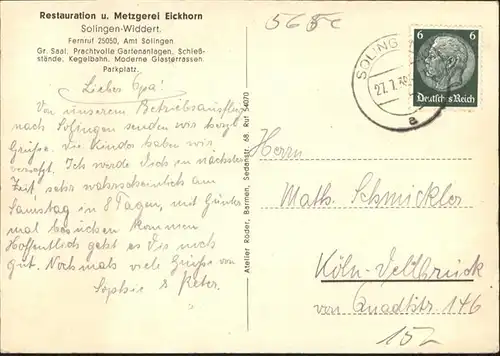 Restauration u. Metzgerei Eickhorn
Solingen-Widdert.
Fernruf 25050, Amt Solingen
Gr. Saal. Prachtvolle Gartenanlagen, Schieß-
stände, Kegelbahn. Moderne Glasterrassen.
Parkplatz.
Lieber Opa!
Von unserem Betriebsausflug
nach Solingen senden wir herzl.
Grüße. Die Kinder haben wir
versorgt. Ich werde Dich in nächster
Zeit, sehr wahrscheinlich am
Samstag in 8 Tagen, mit Günter
mal besuchen kommen
Hoffentlich geht es Dir noch
gut. Nochmals viele Grüße von
Sophie & Peter.
Atelier Röder, Barmen, Sedanstr. 68. Ruf 54070
565
SOLING
27.7.38
a
6 6
Deutsches Reich
Herrn
Math. Schmickler
Köln-
von Quadtstr 146
15